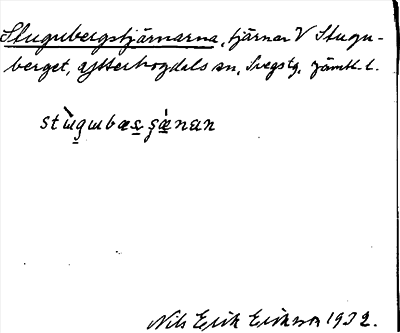 Stugubergstjärnarna, tjärnar V Stugu-
berget, Ytterhogdals sn, Svegs tg, Jämtl. l.
Nils Erik Erikson 1932.